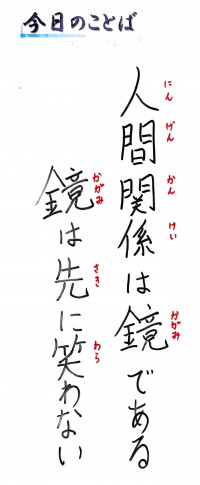 今日のことば
人間関係は鏡である
にんげんかんけい
かがみ
鏡は先に笑わない
かがみ
さき
わら